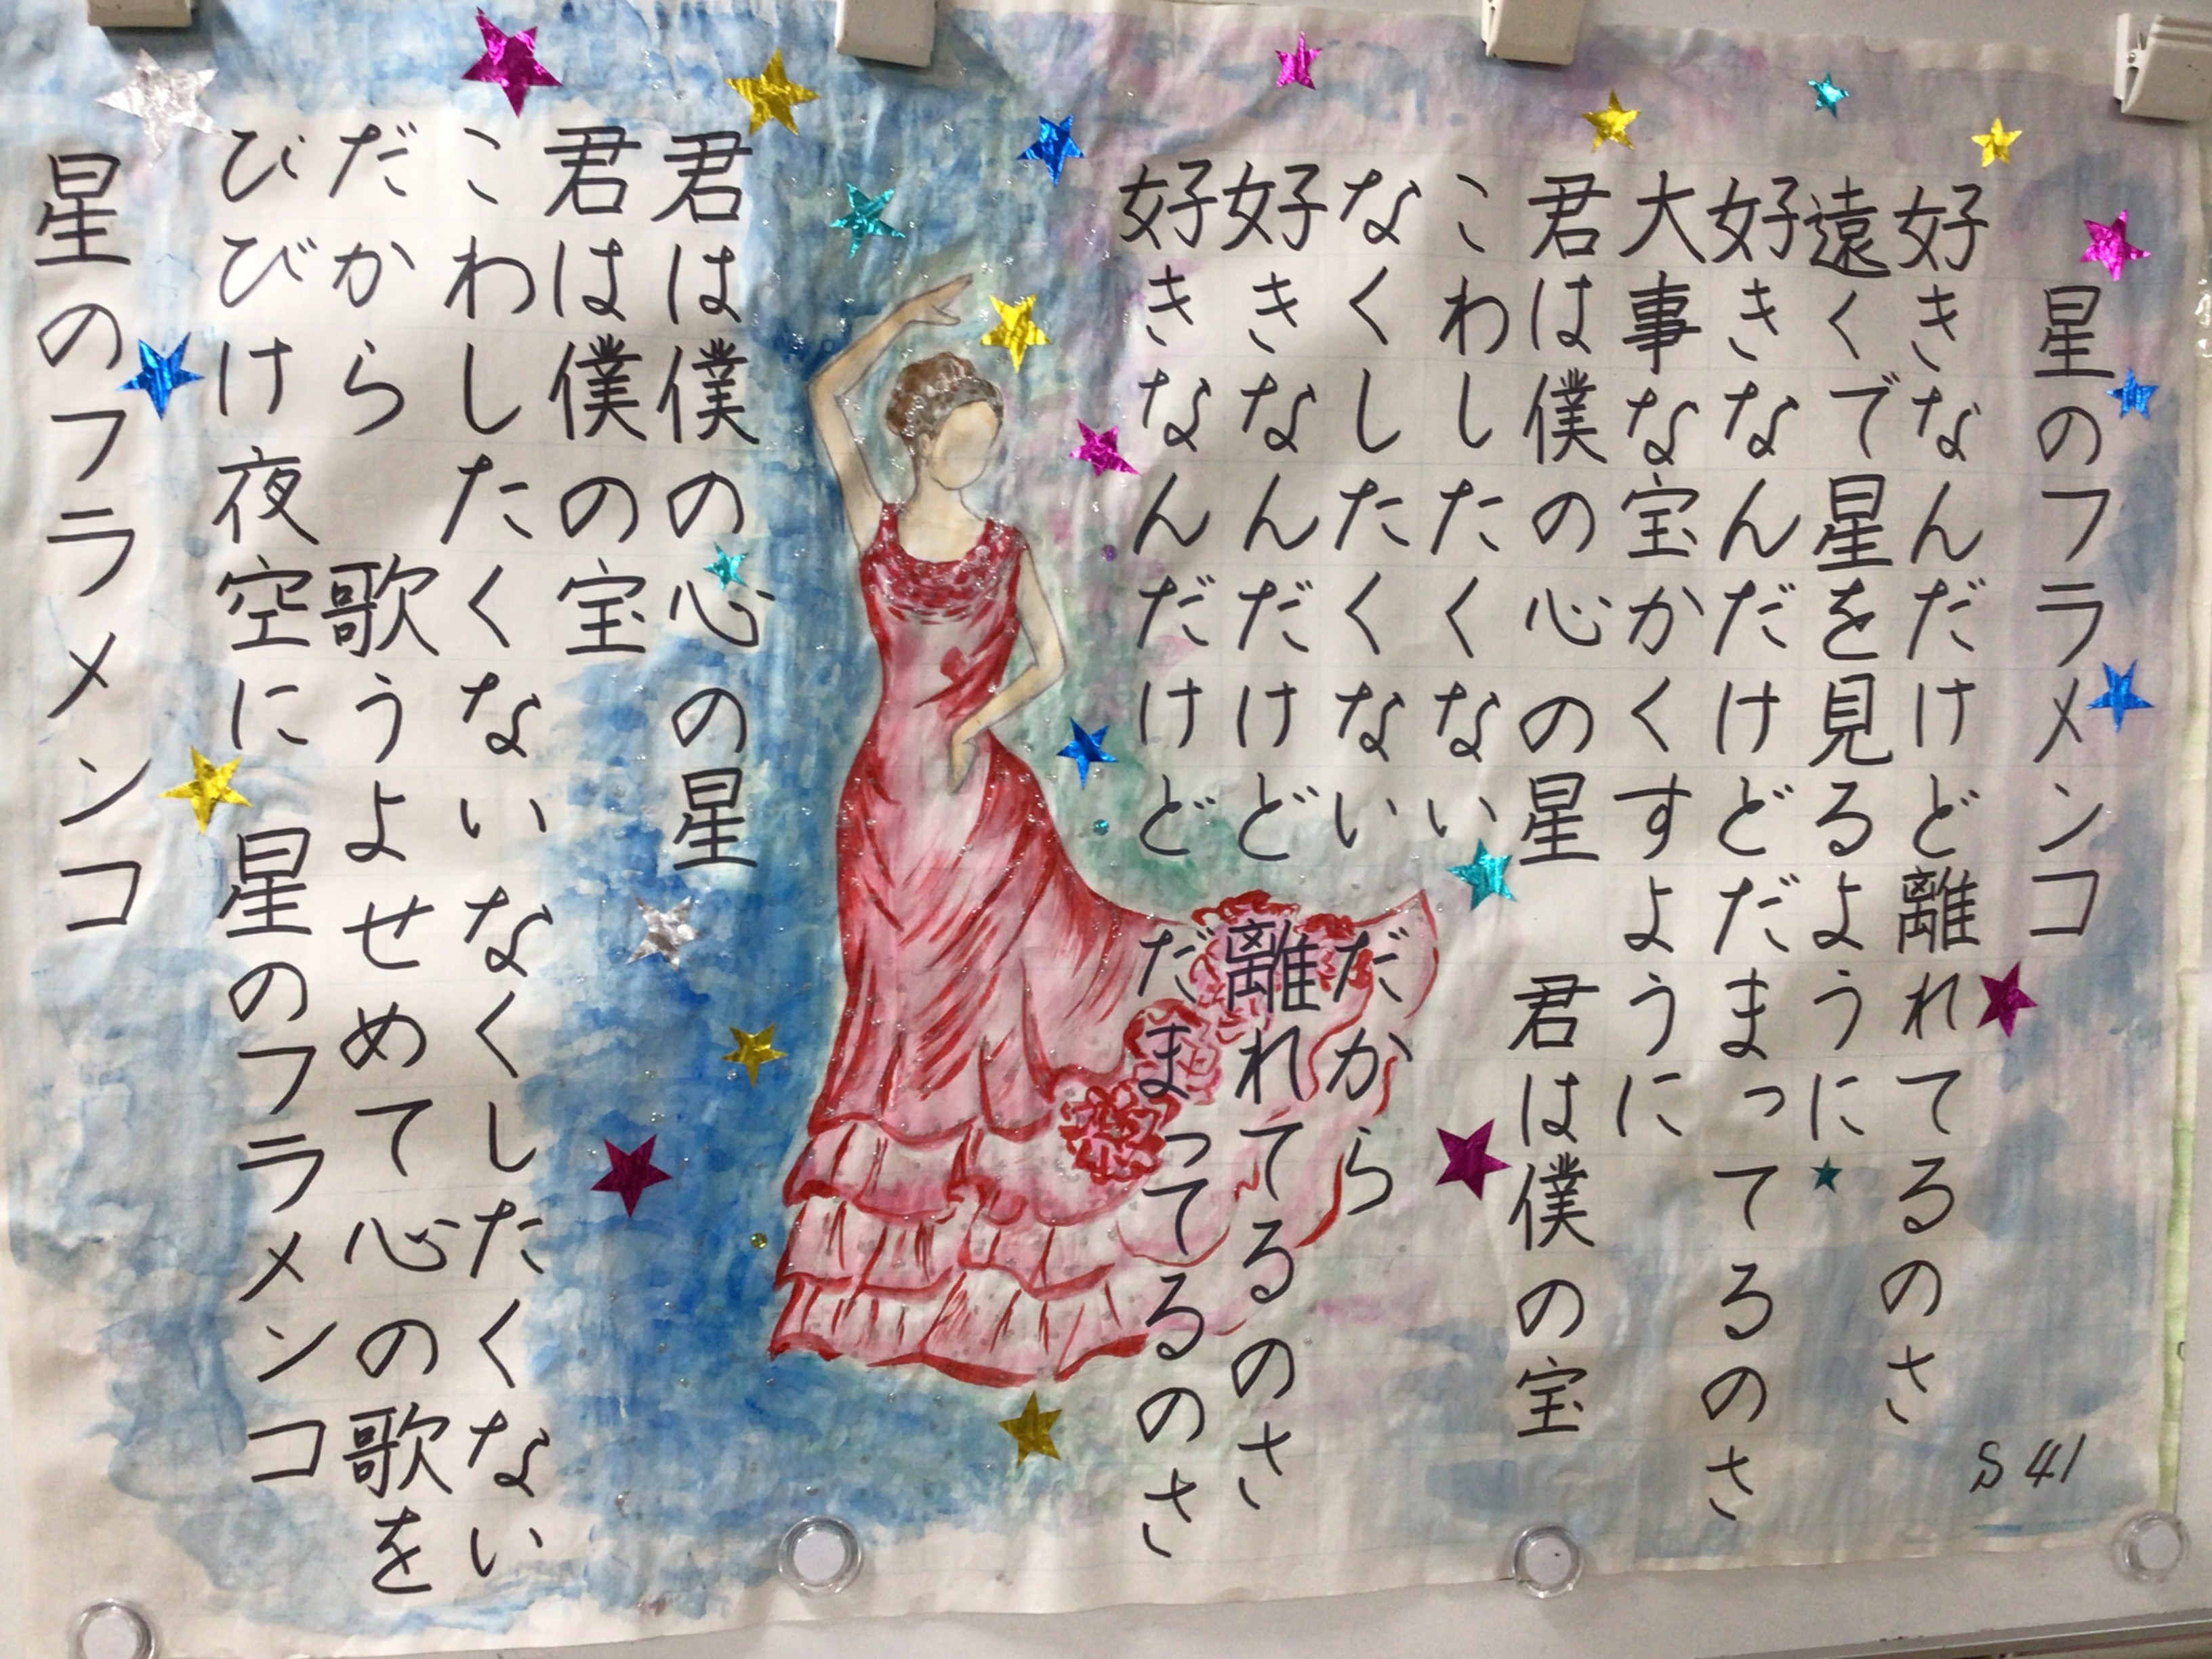 星のフラメンコ
好きなんだけど離れてるのさ
遠くで星を見るように
好きなんだけどだまってるのさ
大事な宝かくすように
君は僕の心の星　君は僕の宝
こわしたくない
なくしたくない　だから
好きなんだけど　離れてるのさ
好きなんだけど　だまってるのさ
君は僕の心の星
君は僕の宝
こわしたくない　なくしたくない
だから　歌うよせめて心の歌を
ひびけ夜空に　星のフラメンコ
星のフラメンコ
S 41